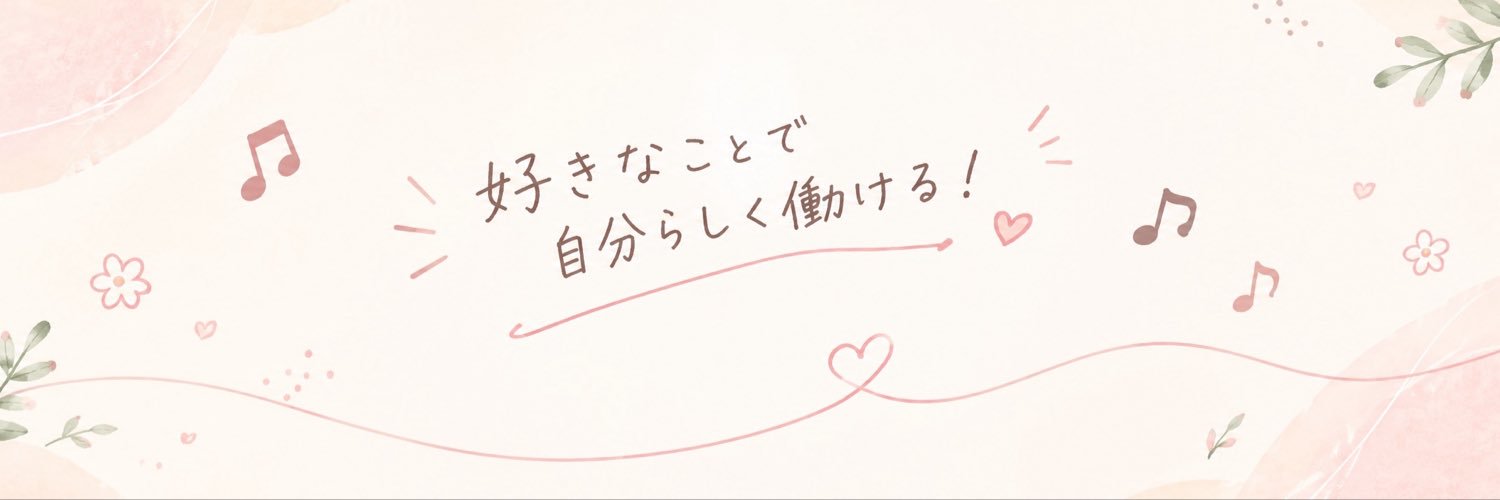 好きなことで
自分らしく働ける！